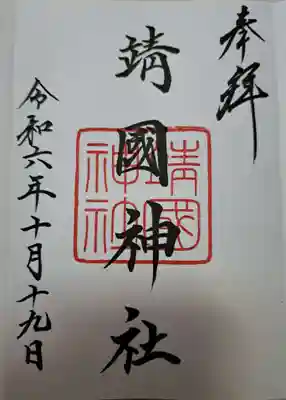 奉拝
靖國神社
靖國
神社
令和六年十月十九日